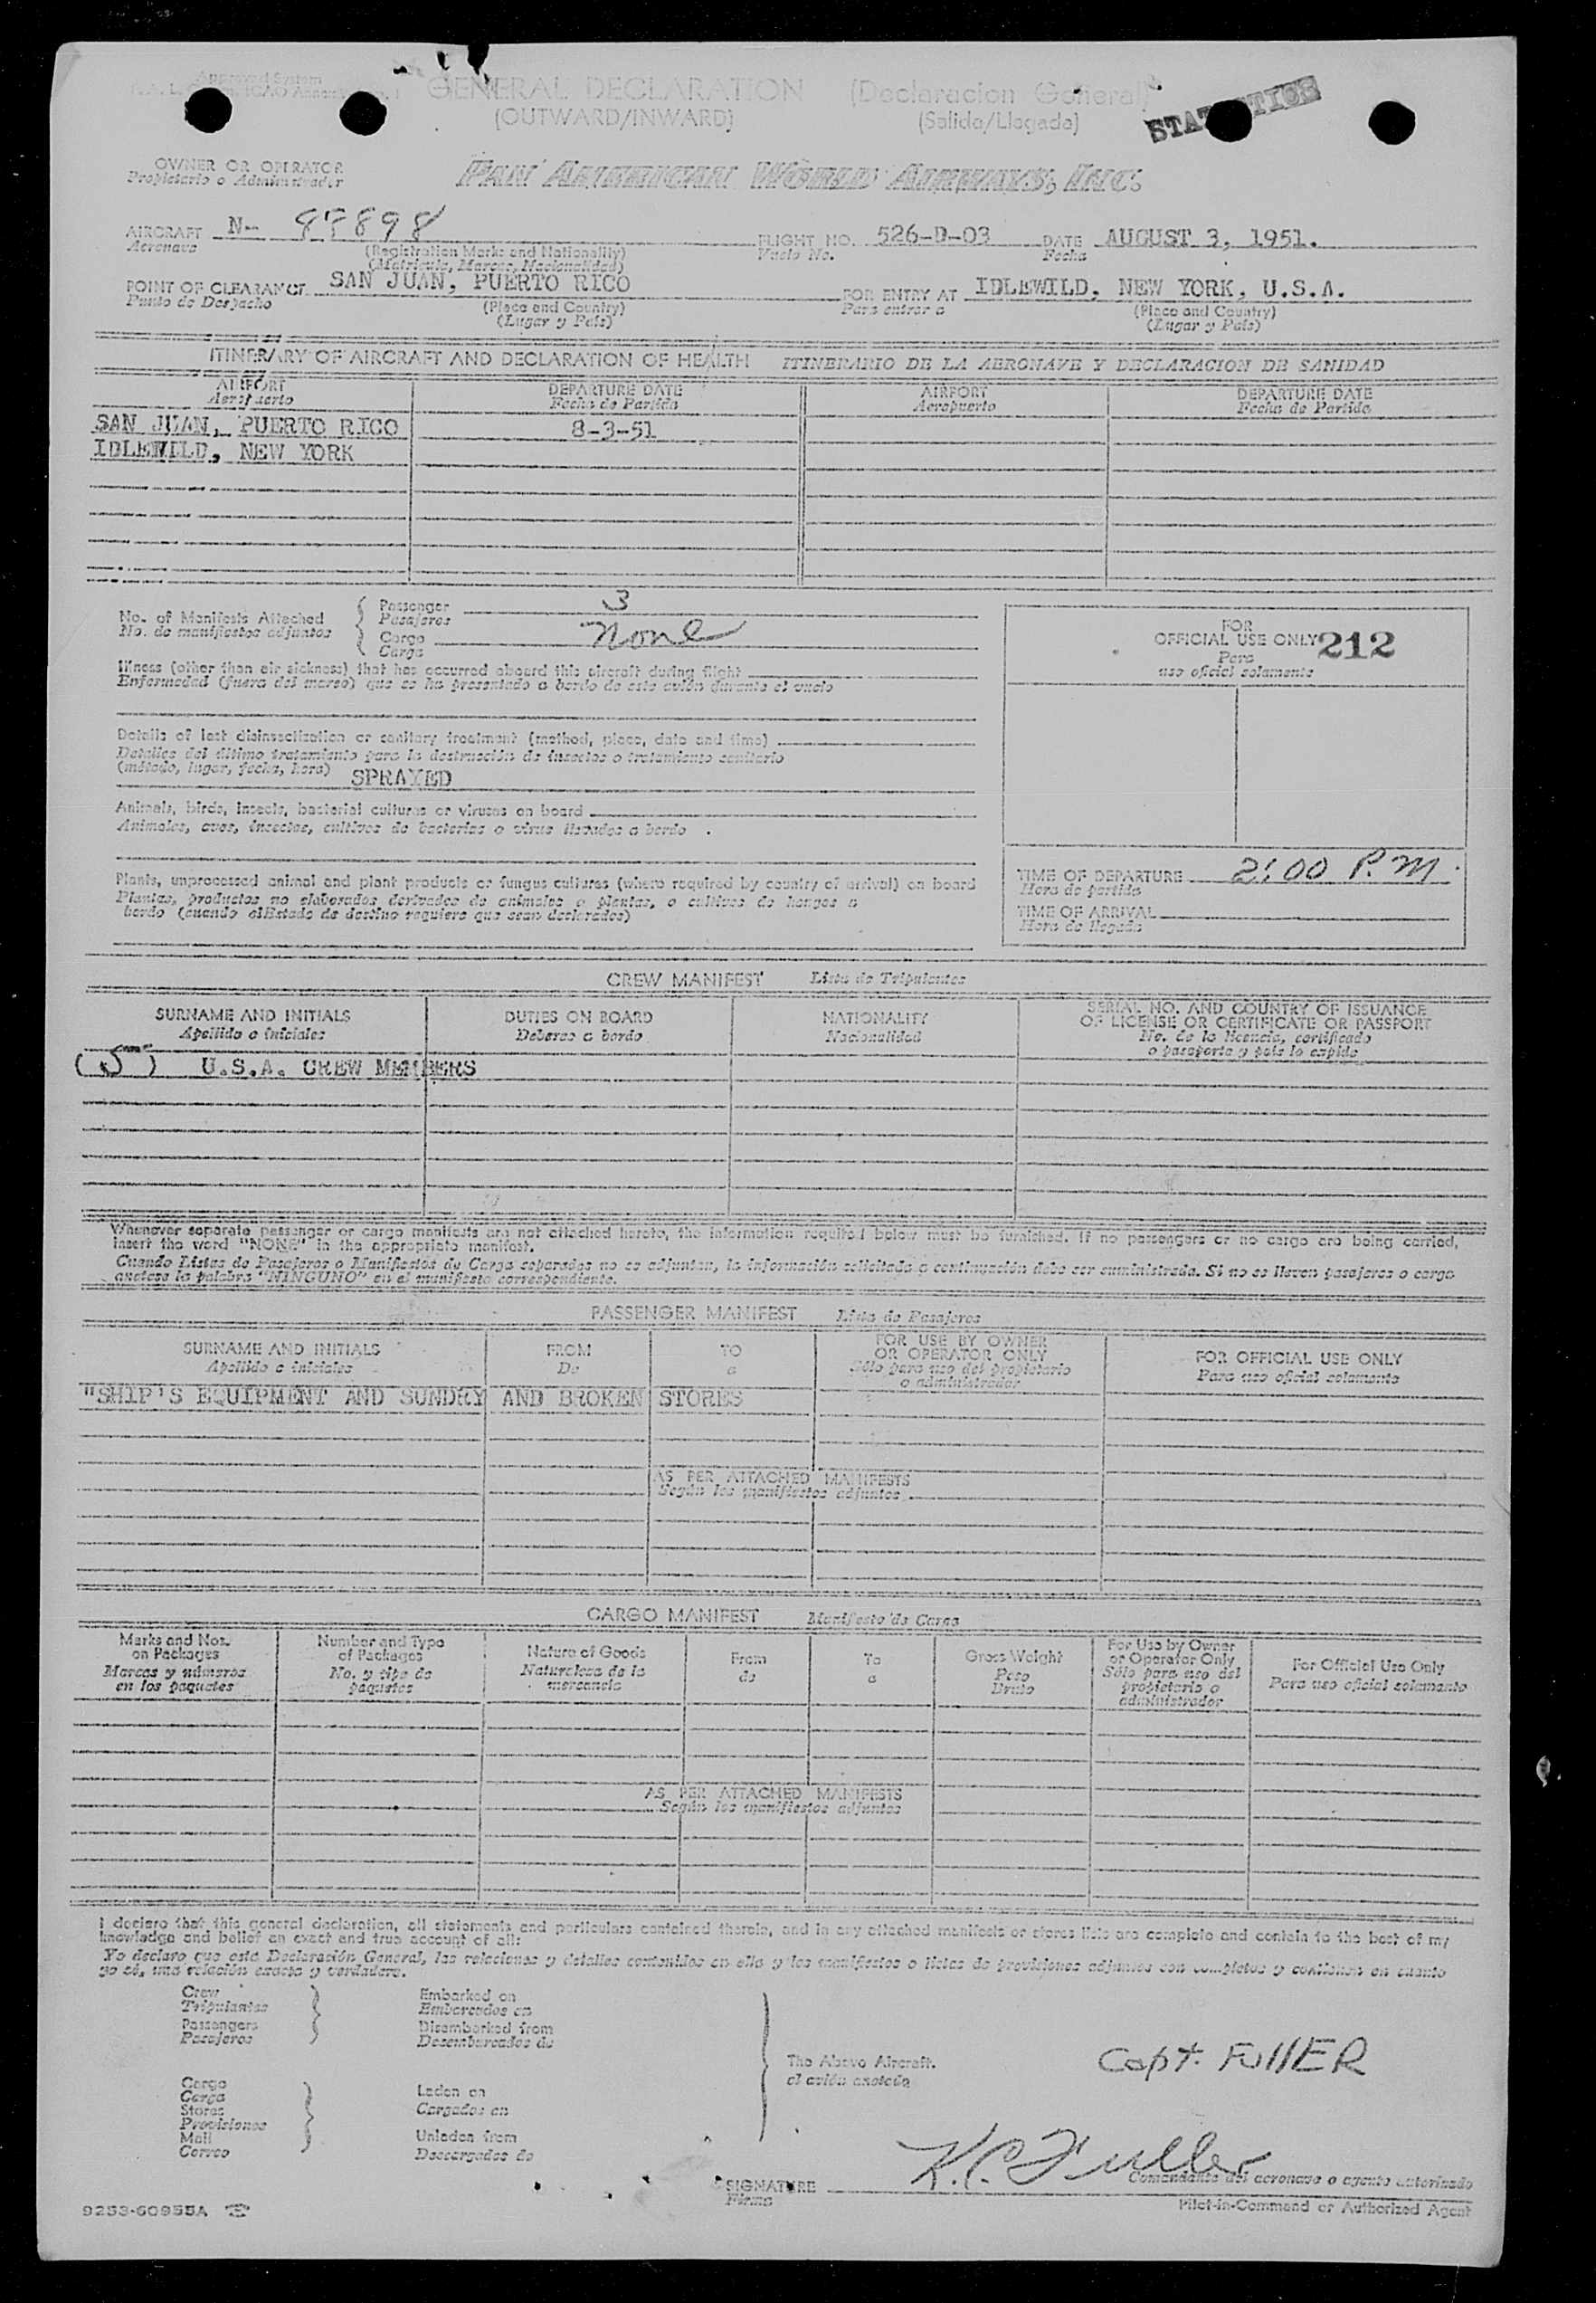 Approved System
GENERAL DECLARATION (Declaracion General)
(OUTWARD/INWARD) (Salida/Llegada)
STATISTICS
OWNER OR OPERATOR
Propietario o Administrador
PAN AMERICAN WORLD AIRWAYS, INC.
AIRCRAFT N- 88898 FLIGHT NO. 526-D-03 DATE AUGUST 3, 1951.
Aeronave (Registration Marks and Nationality) Vuelo No. Fecha
(Matricula, Marcas, Nacionalidad)
POINT OF CLEARANCE SAN JUAN, PUERTO RICO FOR ENTRY AT IDLEWILD, NEW YORK, U.S.A.
Punto de Despacho (Place and Country) Para entrar a (Place and Country)
(Lugar y País) (Lugar y País)
ITINERARY OF AIRCRAFT AND DECLARATION OF HEALTH ITINERARIO DE LA AERONAVE Y DECLARACION DE SANIDAD
AIRPORT DEPARTURE DATE AIRPORT DEPARTURE DATE
Aeropuerto Fecha de Partida Aeropuerto Fecha de Partida
SAN JUAN, PUERTO RICO 8-3-51
IDLEWILD, NEW YORK
No. of Manifests Attached Passenger 3
No. de manifiestos adjuntos Pasajeros
Cargo None
Carga
FOR
OFFICIAL USE ONLY 212
Para
uso oficial solamente
Illness (other than air sickness) that has occurred aboard this aircraft during flight
Enfermedad (fuera del mareo) que se ha presentado a bordo de este avión durante el vuelo
Details of last disinsectization or sanitary treatment (method, place, date and time)
Detalles del último tratamiento para la destrucción de insectos o tratamiento sanitario
(método, lugar, fecha, hora) SPRAYED
Animals, birds, insects, bacterial cultures or viruses on board
Animales, aves, insectos, cultivos de bacterias o virus llevados a bordo
Plants, unprocessed animal and plant products or fungus cultures (where required by country of arrival) on board
Plantas, productos no elaborados derivados de animales o plantas, o cultivos de hongos a
bordo (cuando el Estado de destino requiere que sean declarados)
TIME OF DEPARTURE 2:00 P.M.
Hora de partida
TIME OF ARRIVAL
Hora de llegada
CREW MANIFEST Lista de Tripulantes
SURNAME AND INITIALS DUTIES ON BOARD NATIONALITY SERIAL NO. AND COUNTRY OF ISSUANCE
Apellido o iniciales Deberes a bordo Nacionalidad OF LICENSE OR CERTIFICATE OR PASSPORT
No. de la licencia, certificado
o pasaporte y país lo expide
(5) U.S.A. CREW MEMBERS
Whenever separate passenger or cargo manifests are not attached hereto, the information required below must be furnished. If no passengers or no cargo are being carried,
insert the word "NONE" in the appropriate manifest.
Cuando Listas de Pasajeros o Manifiestos de Carga separados no se adjuntan, la información solicitada a continuación debe ser suministrada. Si no se llevan pasajeros o carga
anótese la palabra "NINGUNO" en el manifiesto correspondiente.
PASSENGER MANIFEST Lista de Pasajeros
SURNAME AND INITIALS FROM TO FOR USE BY OWNER FOR OFFICIAL USE ONLY
Apellido o iniciales De a OR OPERATOR ONLY Para uso oficial solamente
Sólo para uso del propietario
o administrador
"SHIP'S EQUIPMENT AND SUNDRY AND BROKEN STORES
AS PER ATTACHED MANIFESTS
Según los manifiestos adjuntos
CARGO MANIFEST Manifiesto de Carga
Marks and Nos. on Packages Number and Type of Packages Nature of Goods From To Gross Weight For Use by Owner or Operator Only For Official Use Only
Marcas y números en los paquetes No. y tipo de paquetes Naturaleza de la mercancía de a Peso Bruto Sólo para uso del propietario o administrador Para uso oficial solamente
AS PER ATTACHED MANIFESTS
Según los manifiestos adjuntos
I declare that this general declaration, all statements and particulars contained therein, and in any attached manifests or stores lists are complete and contain to the best of my
knowledge and belief an exact and true account of all:
Yo declaro que esta Declaración General, las relaciones y detalles contenidos en ella y los manifiestos o listas de provisiones adjuntos son completos y contienen en cuanto
yo sé, una relación exacta y verdadera.
Crew Embarked on
Tripulantes Embarcados en
Passengers Disembarked from
Pasajeros Desembarcados de
The Above Aircraft.
el avión anotado
Capt. FullER
Cargo
Carga Laden on
Stores Cargados en
Provisiones
Mail Unladen from
Correo Descargados de
SIGNATURE K.C. Fuller
Firma Comandante del aeronave o agente autorizado
9253-60955A Pilot-in-Command or Authorized Agent